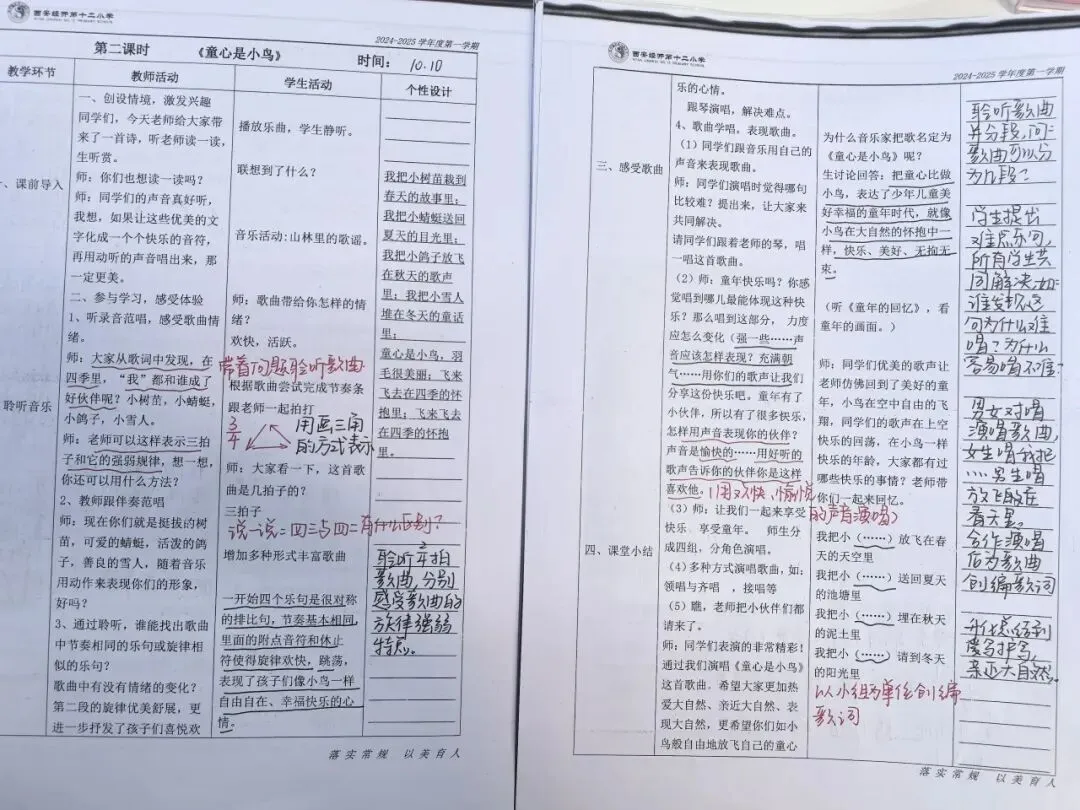 西安经开第十二小学
2024-2025 学年度第一学期
第二课时 《童心是小鸟》 时间: 10.10
教学环节
教师活动
学生活动
个性设计
一、课前导入
聆听音乐
一、创设情境，激发兴趣
同学们，今天老师给大家带
来了一首诗，听老师读一读，
生听赏。
师：你们也想读一读吗？
师：同学们的声音真好听，
我想，如果让这些优美的文
字化成一个个快乐的音符，
再用动听的声音唱出来，那
一定更美。
二、参与学习，感受体验
1、听录音范唱，感受歌曲情
绪。
师：大家从歌词中发现，在
四季里，“我”都和谁成了
好伙伴呢？小树苗，小蜻蜓，
小鸽子，小雪人。
师：老师可以这样表示三拍
子和它的强弱规律，想一想，
你还可以用什么方法？
2、教师跟伴奏范唱
师：现在你们就是挺拔的树
苗，可爱的蜻蜓，活泼的鸽
子，善良的雪人，随着音乐
用动作来表现你们的形象，
好吗？
3、通过聆听，谁能找出歌曲
中节奏相同的乐句或旋律相
似的乐句？
歌曲中有没有情绪的变化？
第二段的旋律优美舒展，更
进一步抒发了孩子们喜悦欢
播放乐曲，学生静听。
联想到了什么？
音乐活动：山林里的歌谣。
师：歌曲带给你怎样的情
绪？
欢快，活跃。
带着问题聆听歌曲
根据歌曲尝试完成节奏条
跟老师一起拍打
3/4
用画三角
的方式表示
师：大家看一下，这首歌
曲是几拍子的？
三拍子
说一说：四三与四二有什么区别？
增加多种形式丰富歌曲
一开始四个乐句是很对称
的排比句，节奏基本相同，
里面的附点音符和休止
符使得旋律欢快，跳荡，
表现了孩子们像小鸟一样
自由自在、幸福快乐的心
情。
我把小树苗栽到
春天的故事里；
我把小蜻蜓送回
夏天的目光里；
我把小鸽子放飞
在秋天的歌声
里；我把小雪人
堆在冬天的童话
里；
童心是小鸟，羽
毛很美丽；飞来
飞去在四季的怀
抱里；飞来飞去
在四季的怀抱
里。
聆听2/4拍
歌曲,分别
感受歌曲的
旋律强弱
特点。
落实常规 以美育人
西安经开第十二小学
2024-2025 学年度第一学期
三、感受歌曲
四、课堂小结
乐的心情。
跟琴演唱，解决难点。
4、歌曲学唱，表现歌曲。
（1）同学们跟音乐用自己的
声音来表现歌曲。
师：同学们演唱时觉得哪句
比较难？提出来，让大家来
共同解决。
请同学们跟着老师的琴，唱
一唱这首歌曲。
（2）师：童年快乐吗？你感
觉唱到哪儿最能体现这种快
乐？那么唱到这部分，力度
应怎么变化（强一些……声
音应该怎样表现？充满朝
气……用你们的歌声让我们
分享这份快乐吧。童年有了
小伙伴，所以有了很多快乐，
怎样用声音表现你的伙伴？
声音是愉快的……用好听的
歌声告诉你的伙伴你是这样
喜欢他。
（用欢快、愉悦
的声音演唱）
（3）师：让我们一起来享受
快乐，享受童年。 师生分
成四组，分角色演唱。
（4）多种方式演唱歌曲，如：
领唱与齐唱 ，接唱等
（5）瞧，老师把小伙伴们都
请来了。
师：同学们表演的非常精彩！
通过我们演唱《童心是小鸟》
这首歌曲，希望大家更加热
爱大自然、亲近大自然、表
现大自然，更希望你们如小
鸟般自由地放飞自己的童心
为什么音乐家把歌名定为
《童心是小鸟》呢？
生讨论回答：把童心比做
小鸟，表达了少年儿童美
好幸福的童年时代，就像
小鸟在大自然的怀抱中一
样，快乐、美好、无拘无
束。
（听《童年的回忆》，看
童年的画面。）
师：同学们优美的歌声让
老师仿佛回到了美好的童
年，小鸟在空中自由的飞
翔，同学们的歌声在上空
快乐的回荡，在小鸟一样
快乐的年龄，大家都有过
哪些快乐的事情？老师带
你们一起来回忆。
我把小（……）放飞在春
天的天空里
我把小（……）送回夏天
的池塘里
我把小（……）埋在秋天
的泥土里
我把小（……）请到冬天
的阳光里
以小组为单位创编
歌词
聆听歌曲
并分段,问:
歌曲可以分
为几段?
学生提出
难点乐句,
所有学生共
同解决,如:
谁发现这
句为什么难
唱？为什么
容易唱不准?
男女对唱
演唱歌曲,
女生唱我把
……男生唱
放飞的在
春天里。
合作演唱
后为歌曲
创编歌词
升华总结到
爱鸟护鸟,
亲近大自然。
落实常规 以美育人